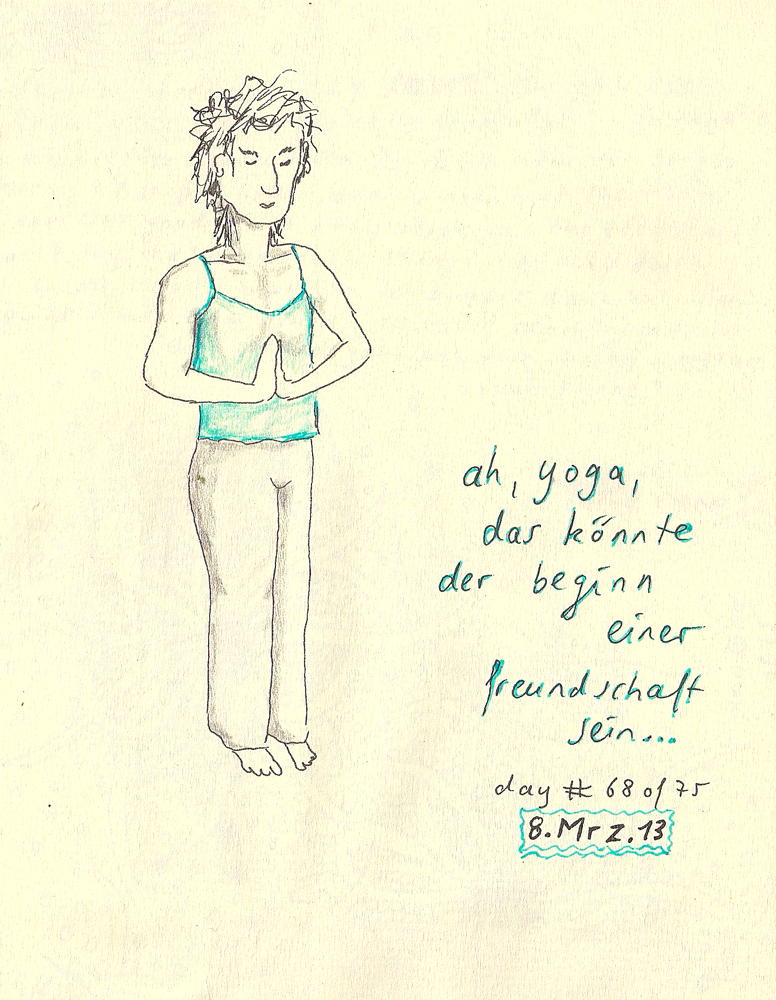 ah, yoga,
das könnte
der beginn
einer
freundschaft
sein...
day # 68 of 75
8.Mrz.13